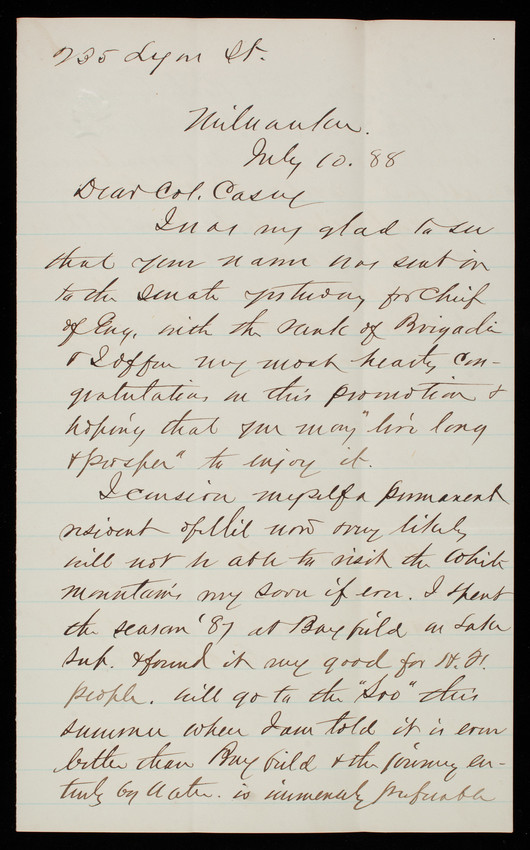 735 Lyon St.
Milwaukee.
July 10. 88
Dear Col. Casey
I was very glad to see
that your name was sent in
to the Senate yesterday for Chief
of Eng. with the rank of Brigadier
& I offer my most hearty con-
gratulations on this promotion &
hoping that you may "live long
& prosper" to enjoy it.
I consider myself a permanent
resident of Mil now & very likely
will not be able to visit the White
Mountains very soon if ever. I spent
the season '87 at Bayfield on Lake
Sup. & found it very good for H. F.
people. Will go to the "Soo" this
summer where I am told it is even
better than Bayfield & the journey en-
tirely by Water. is immensely preferable